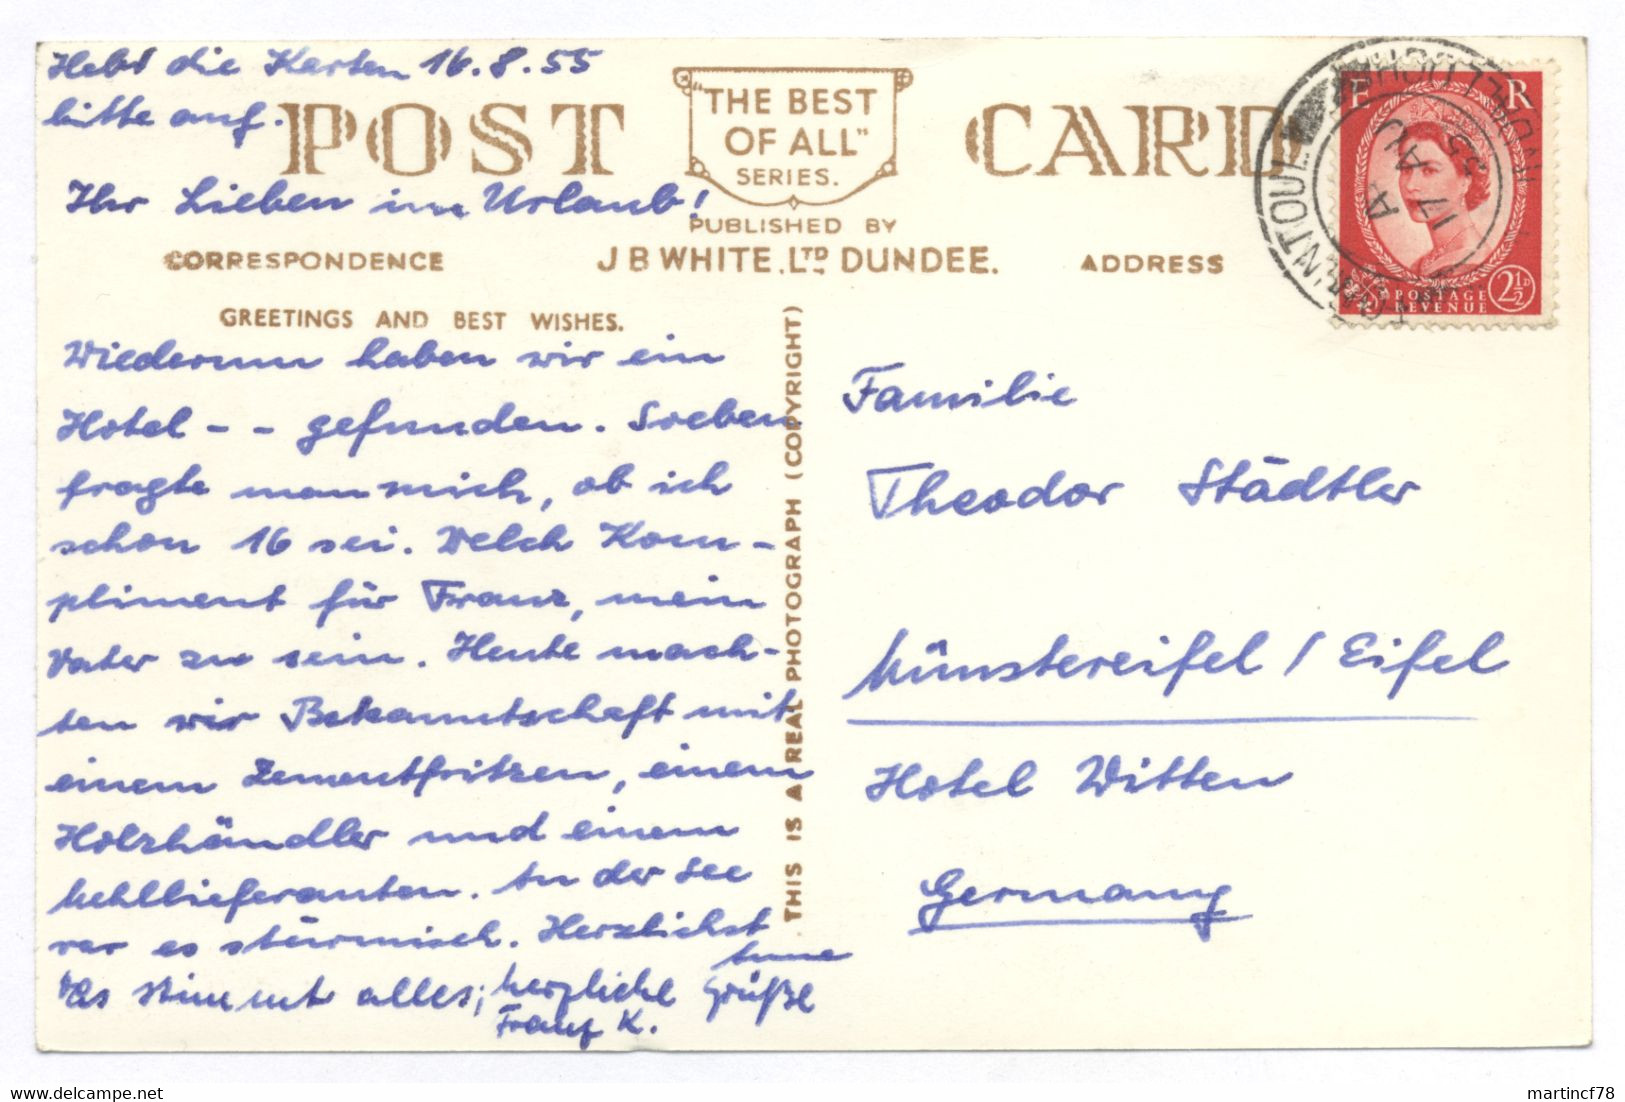 Hebt die Karten 16.8.55
bitte auf.
POST CARD
"THE BEST
OF ALL"
SERIES.
Ihr Lieben im Urlaub!
PUBLISHED BY
J B WHITE. LTD DUNDEE.
CORRESPONDENCE
ADDRESS
GREETINGS AND BEST WISHES.
Wiederum haben wir ein
Hotel - - gefunden. Soeben
fragte man mich, ob ich
schon 16 sei. Welch Kom-
pliment für Franz, mein
Vater zu sein. Heute mach-
ten wir Bekanntschaft mit
einem Zementfritzen, einem
Holzhändler und einem
Mehllieferanten. An der See
war es stürmisch. Herzlichst
Anne
Das stimmt alles; herzliche Grüße
Franz K.
THIS IS A REAL PHOTOGRAPH (COPYRIGHT)
E R
POSTAGE
REVENUE
2½D
TOMINTOUL
4 AU
17 AU
55
Familie
Theodor Städtler
Münstereifel / Eifel
Hotel Witten
Germany
martincf78